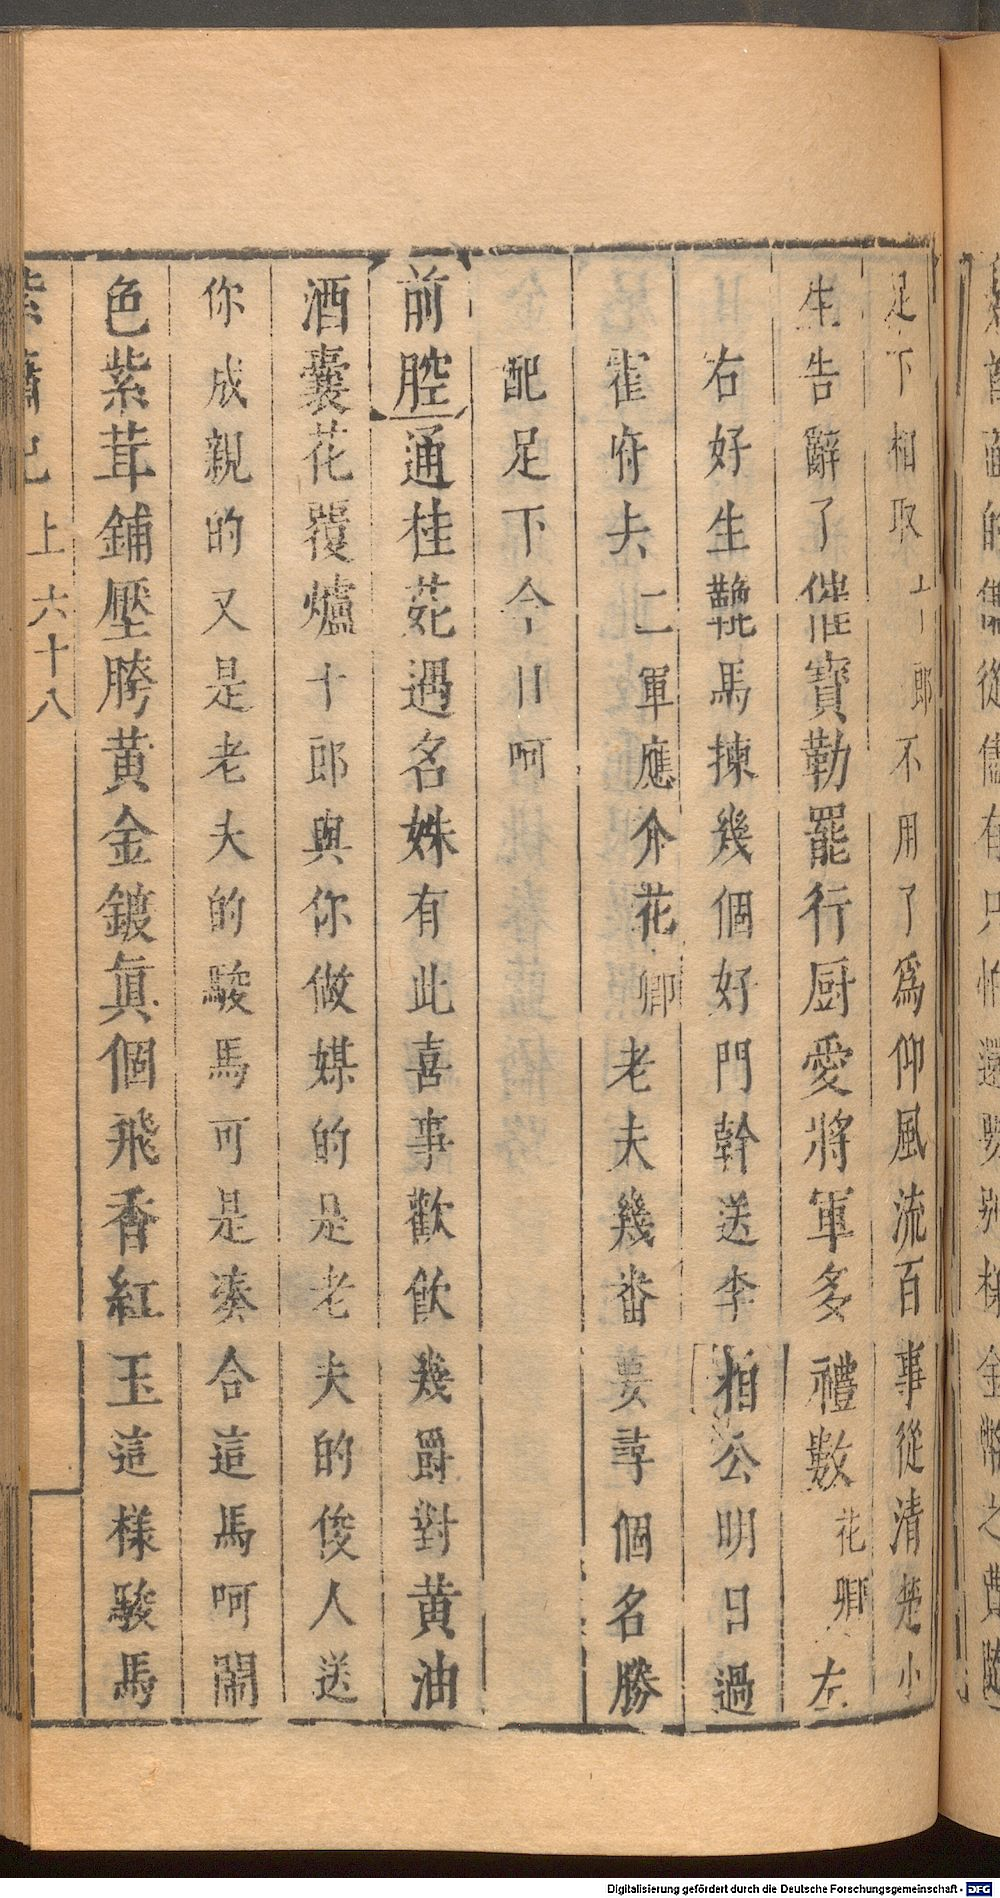 足下相取十郎不用了為仰風流百事從清楚小
生告辭了催寶勒罷行厨愛將軍多禮數花卿左
右好生鞴馬揀幾個好門幹送李相公明日過
霍府去二軍應介花卿老夫幾番要尋個名勝
配足下今日呵
前腔通桂苑遇名姝有此喜事歡飲幾爵對黃油
酒囊花覆爐十郎與你做媒的是老夫的俊人送
你成親的又是老夫的駿馬可是湊合這馬呵鬧
色紫茸鋪壓胯黃金鍍眞個飛香紅玉這樣駿馬
紫簫記 上 六十八
Digitalisierung gefördert durch die Deutsche Forschungsgemeinschaft - DFG